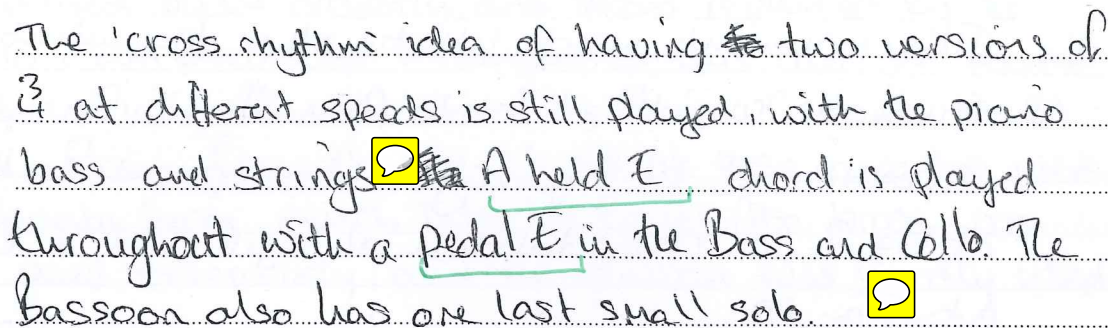 The 'cross rhythm' idea of having two versions of
3/4 at different speeds is still played, with the piano
bass and strings A held E chord is played
throughout with a pedal E in the Bass and Cello. The
Bassoon also has one last small solo.